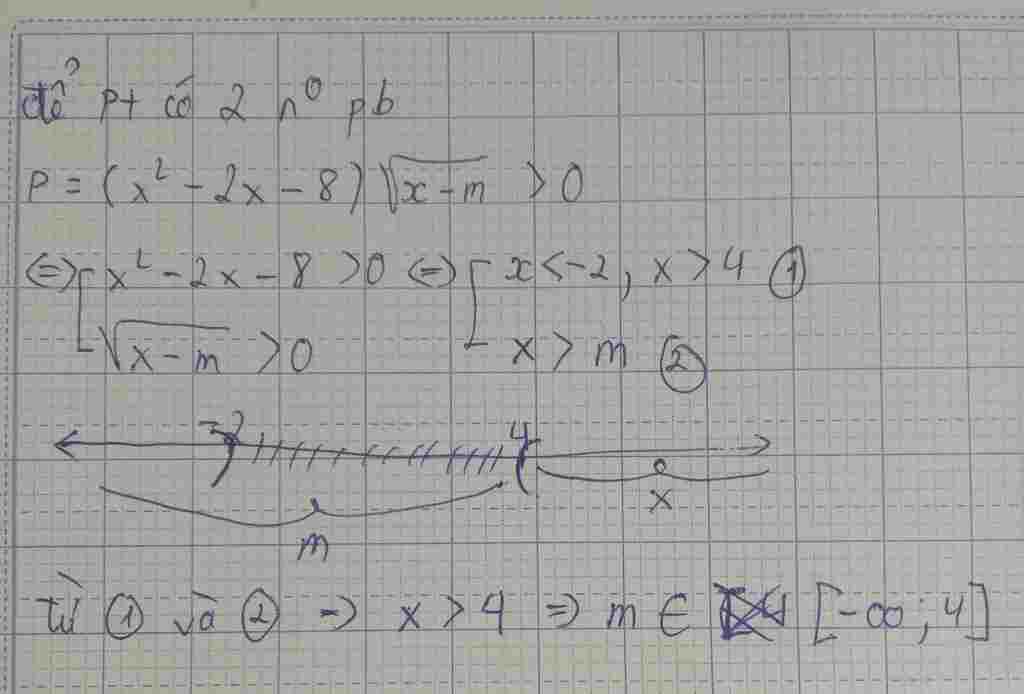 để pt có 2 n⁰ pb
P = (x² - 2x - 8) √(x - m) > 0
⇔ [ x² - 2x - 8 > 0 ⇔ [ x < -2, x > 4 ①
√(x - m) > 0 x > m ②
-2 4
x
m
Từ ① và ② ⇒ x > 4 ⇒ m ∈ [-∞; 4]